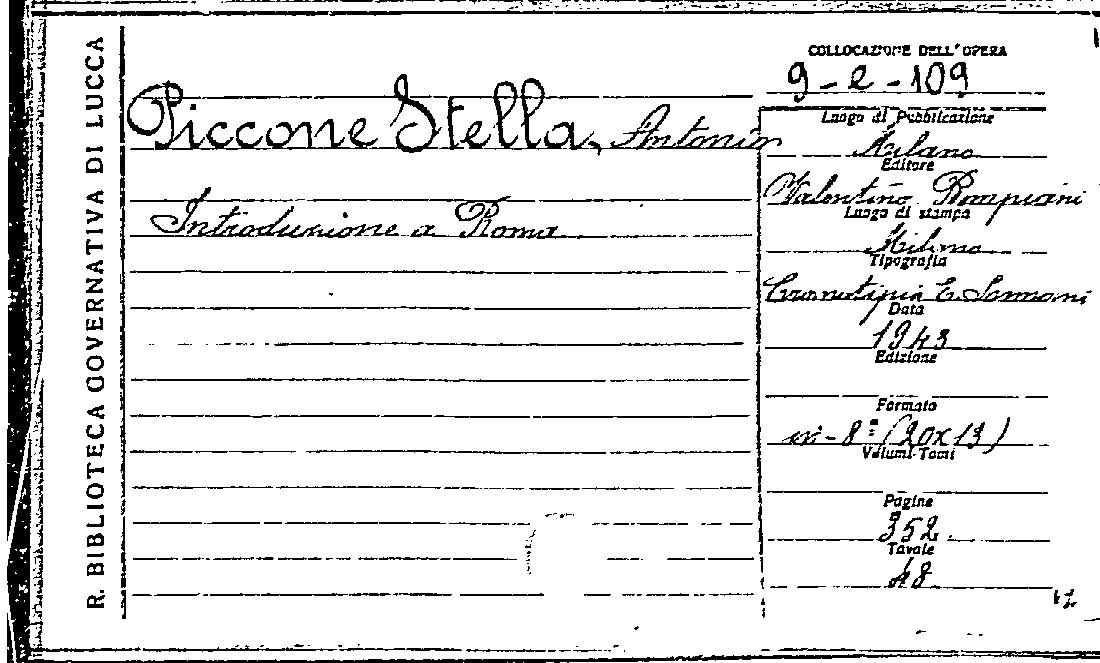 R. BIBLIOTECA GOVERNATIVA DI LUCCA
COLLOCAZIONE DELL'OPERA
9-e-109
Piccone Stella, Antonio
Introduzione a Roma
Luogo di Pubblicazione
Milano
Editore
Valentino Bompiani
Luogo di stampa
Milano
Tipografia
E.
Data
1943
Edizione
Formato
in-8° (20x13)
Volumi-Tomi
Pagine
352
Tavole
48